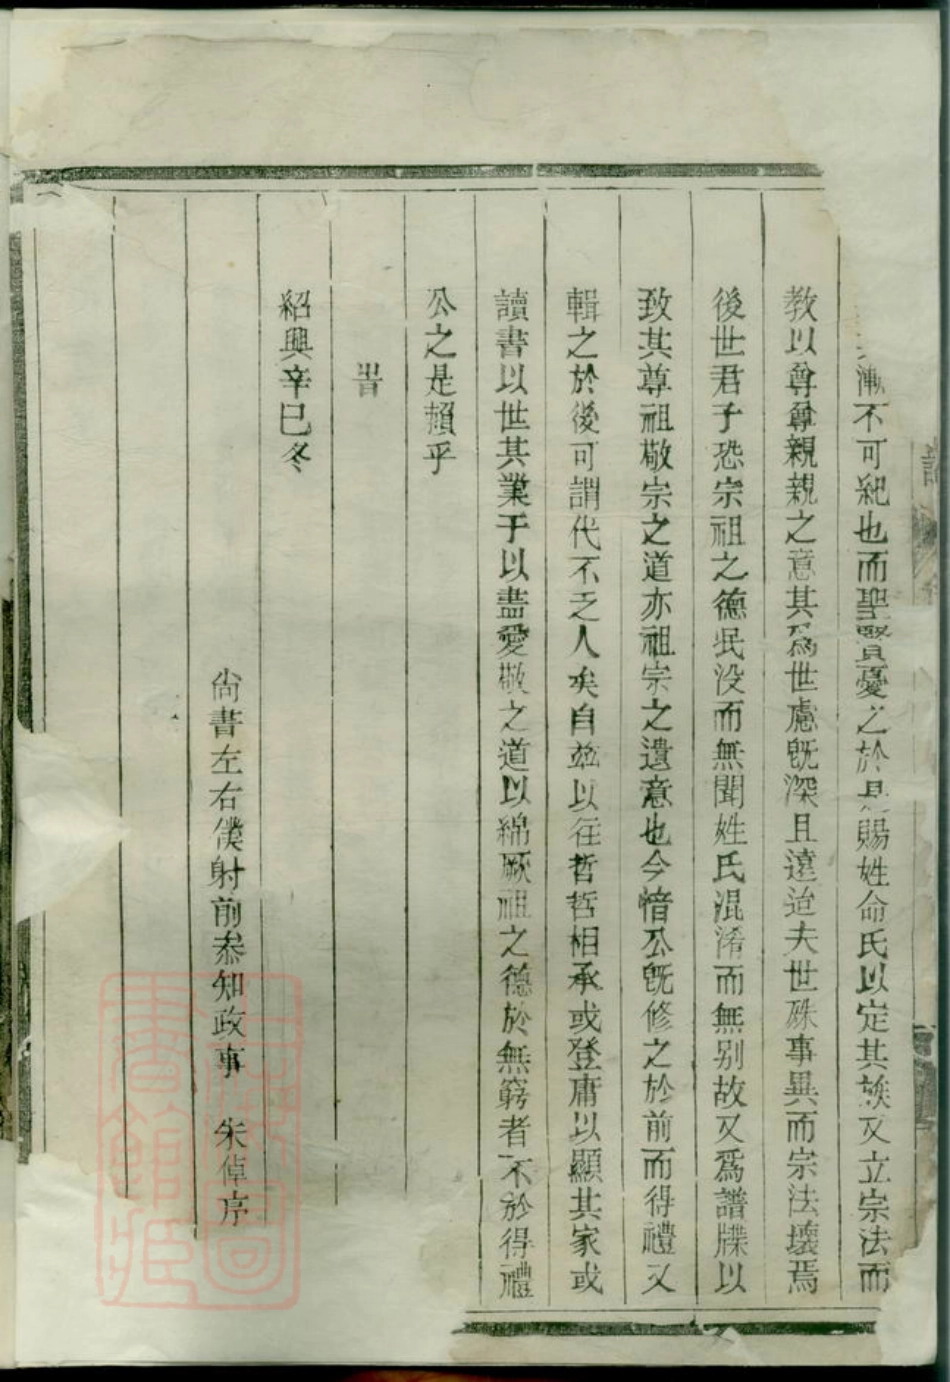 漸不可紀也而聖賢憂之於是賜姓命氏以定其族又立宗法而
教以尊尊親親之意其為世慮既深且遠迨夫世殊事異而宗法壞焉
後世君子恐宗祖之德泯没而無聞姓氏混淆而無别故又為譜牒以
致其尊祖敬宗之道亦祖宗之遺意也今愔公既修之於前而得禮又
輯之於後可謂代不乏人矣自兹以往哲哲相承或登庸以顯其家或
讀書以世其業于以盡愛敬之道以綿厥祖之德於無窮者不於得禮
公之是賴乎
旹
紹興辛巳冬
尚書左右僕射前叅知政事 朱倬序